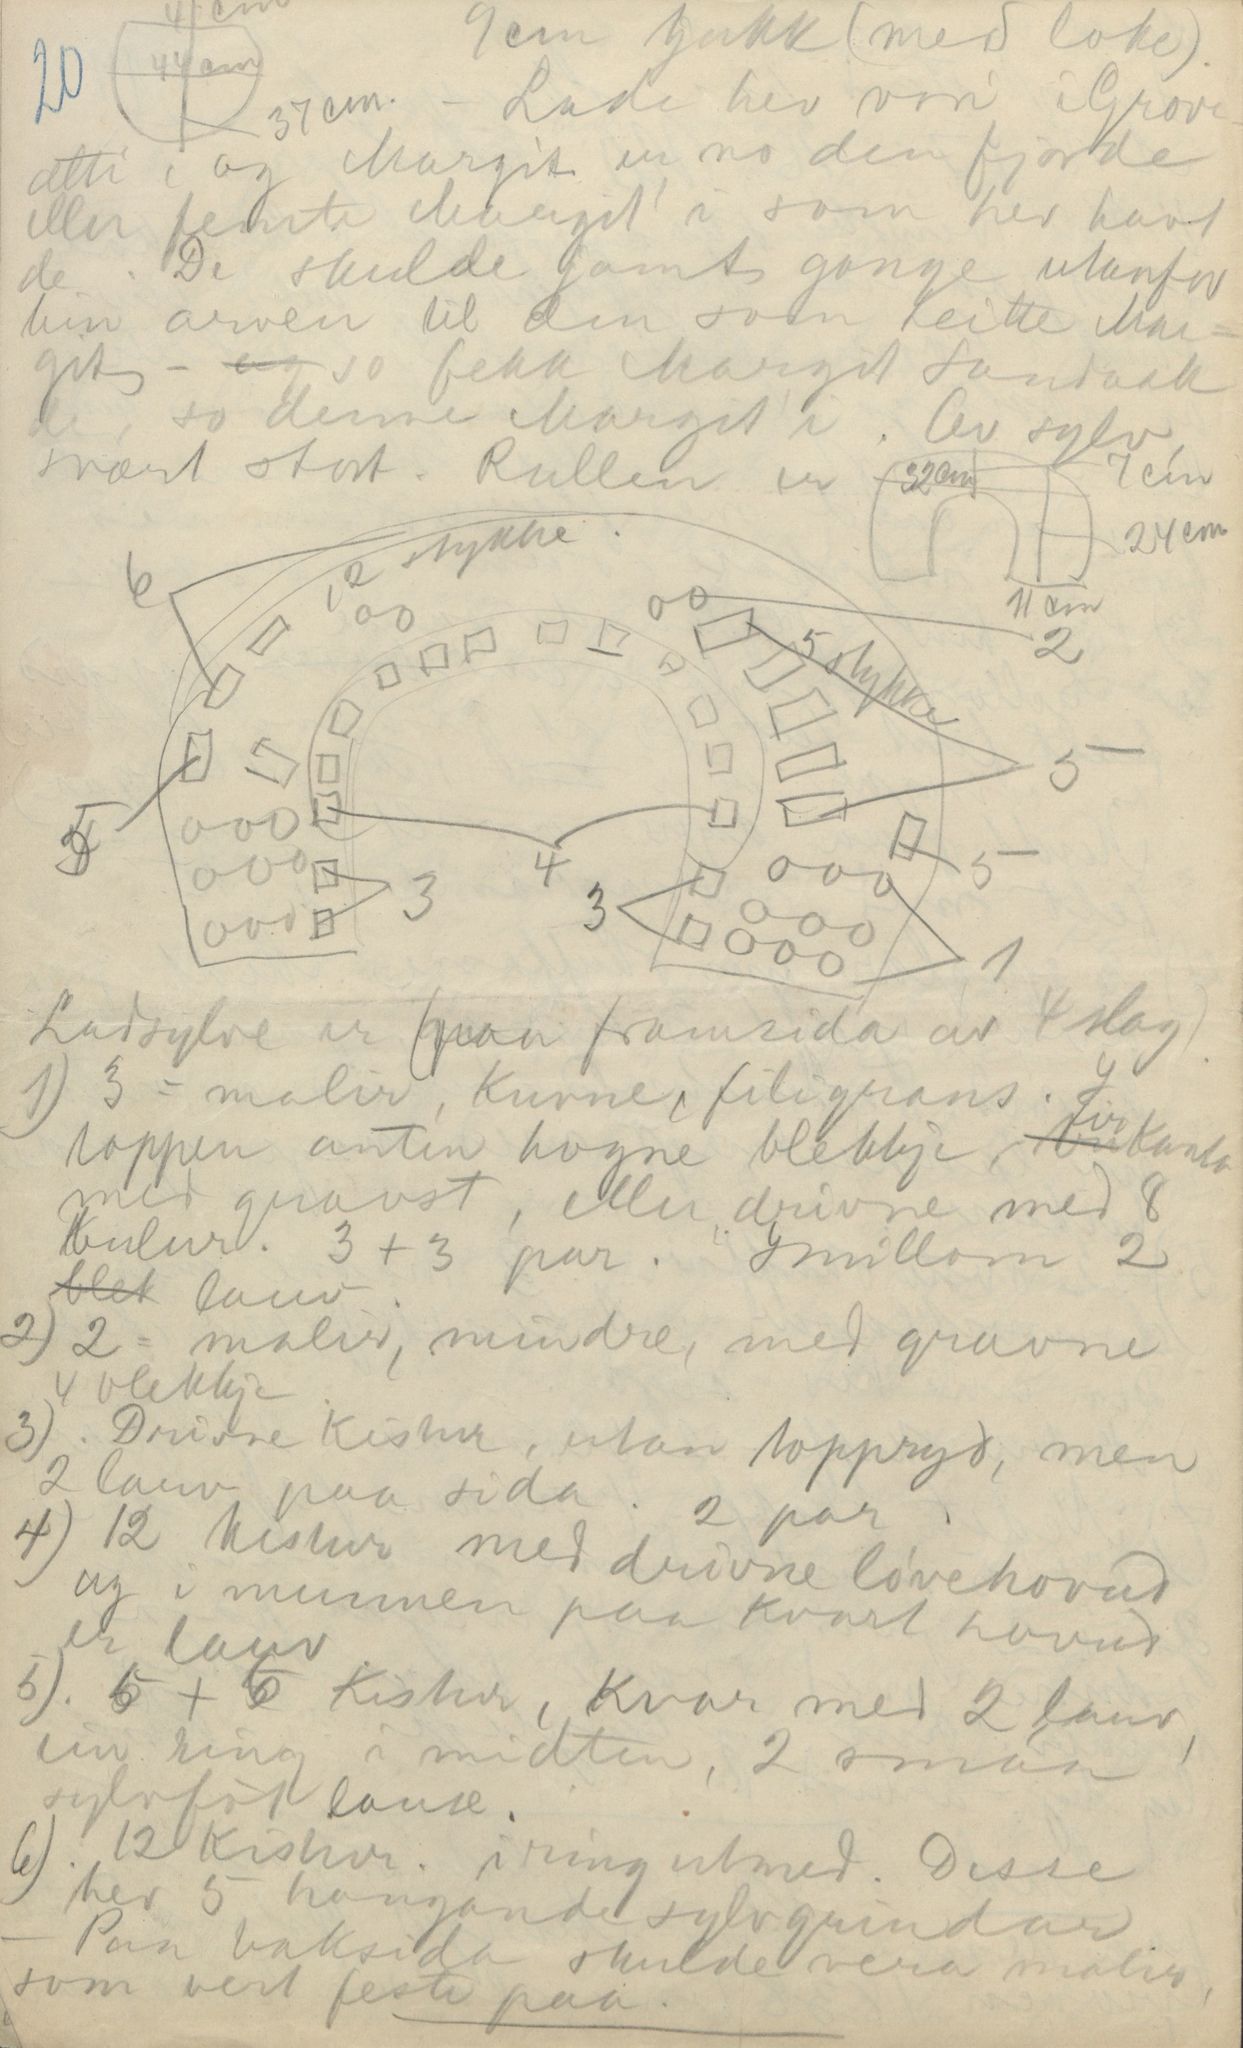 20
41 cm
44 cm
37 cm.
9 cm tjukk (med loke).
- Lade hev vori i Grovi-
ætti, og Margit er no den fjorde
eller femte Margit'i som hev havt
de. De skulde jamt gange utanfor
hin arven til den som heitte Mar=
git, - og so fekk Margit Sandaak
de, so denne Margit'i. Av sylv,
svært stort. Rullen er
32 cm
7 cm
24 cm
11 cm
6
12 stykke.
2
5 stykke
5
5
5
3
4
3
1
Ladsylve er (paa framsida av 4 slag).
1) 3 = malir, kurne, filigrans. I
toppen anten hogne blekkje, firkanta
med gravst, eller drivne med 8
kulur. 3 + 3 par. Imillom 2
blek lauv.
2) 2 = malir, mindre, med gravne
4 blekkje.
3). Drivne kistur, utan toppryd, men
2 lauv paa sida. 2 par.
4) 12 kistur med drivne lövehovud
og i munnen paa kvart hovud
er lauv.
5). 6 + 6 kistur, kvar med 2 lauv,
ein ring i midten, 2 smaa
sylvföt lause.
6). 12 kistur. i ring utmed. Desse
hev 5 hangande sylvgrindar
- Paa baksida skulde vera malir,
som vert feste paa.